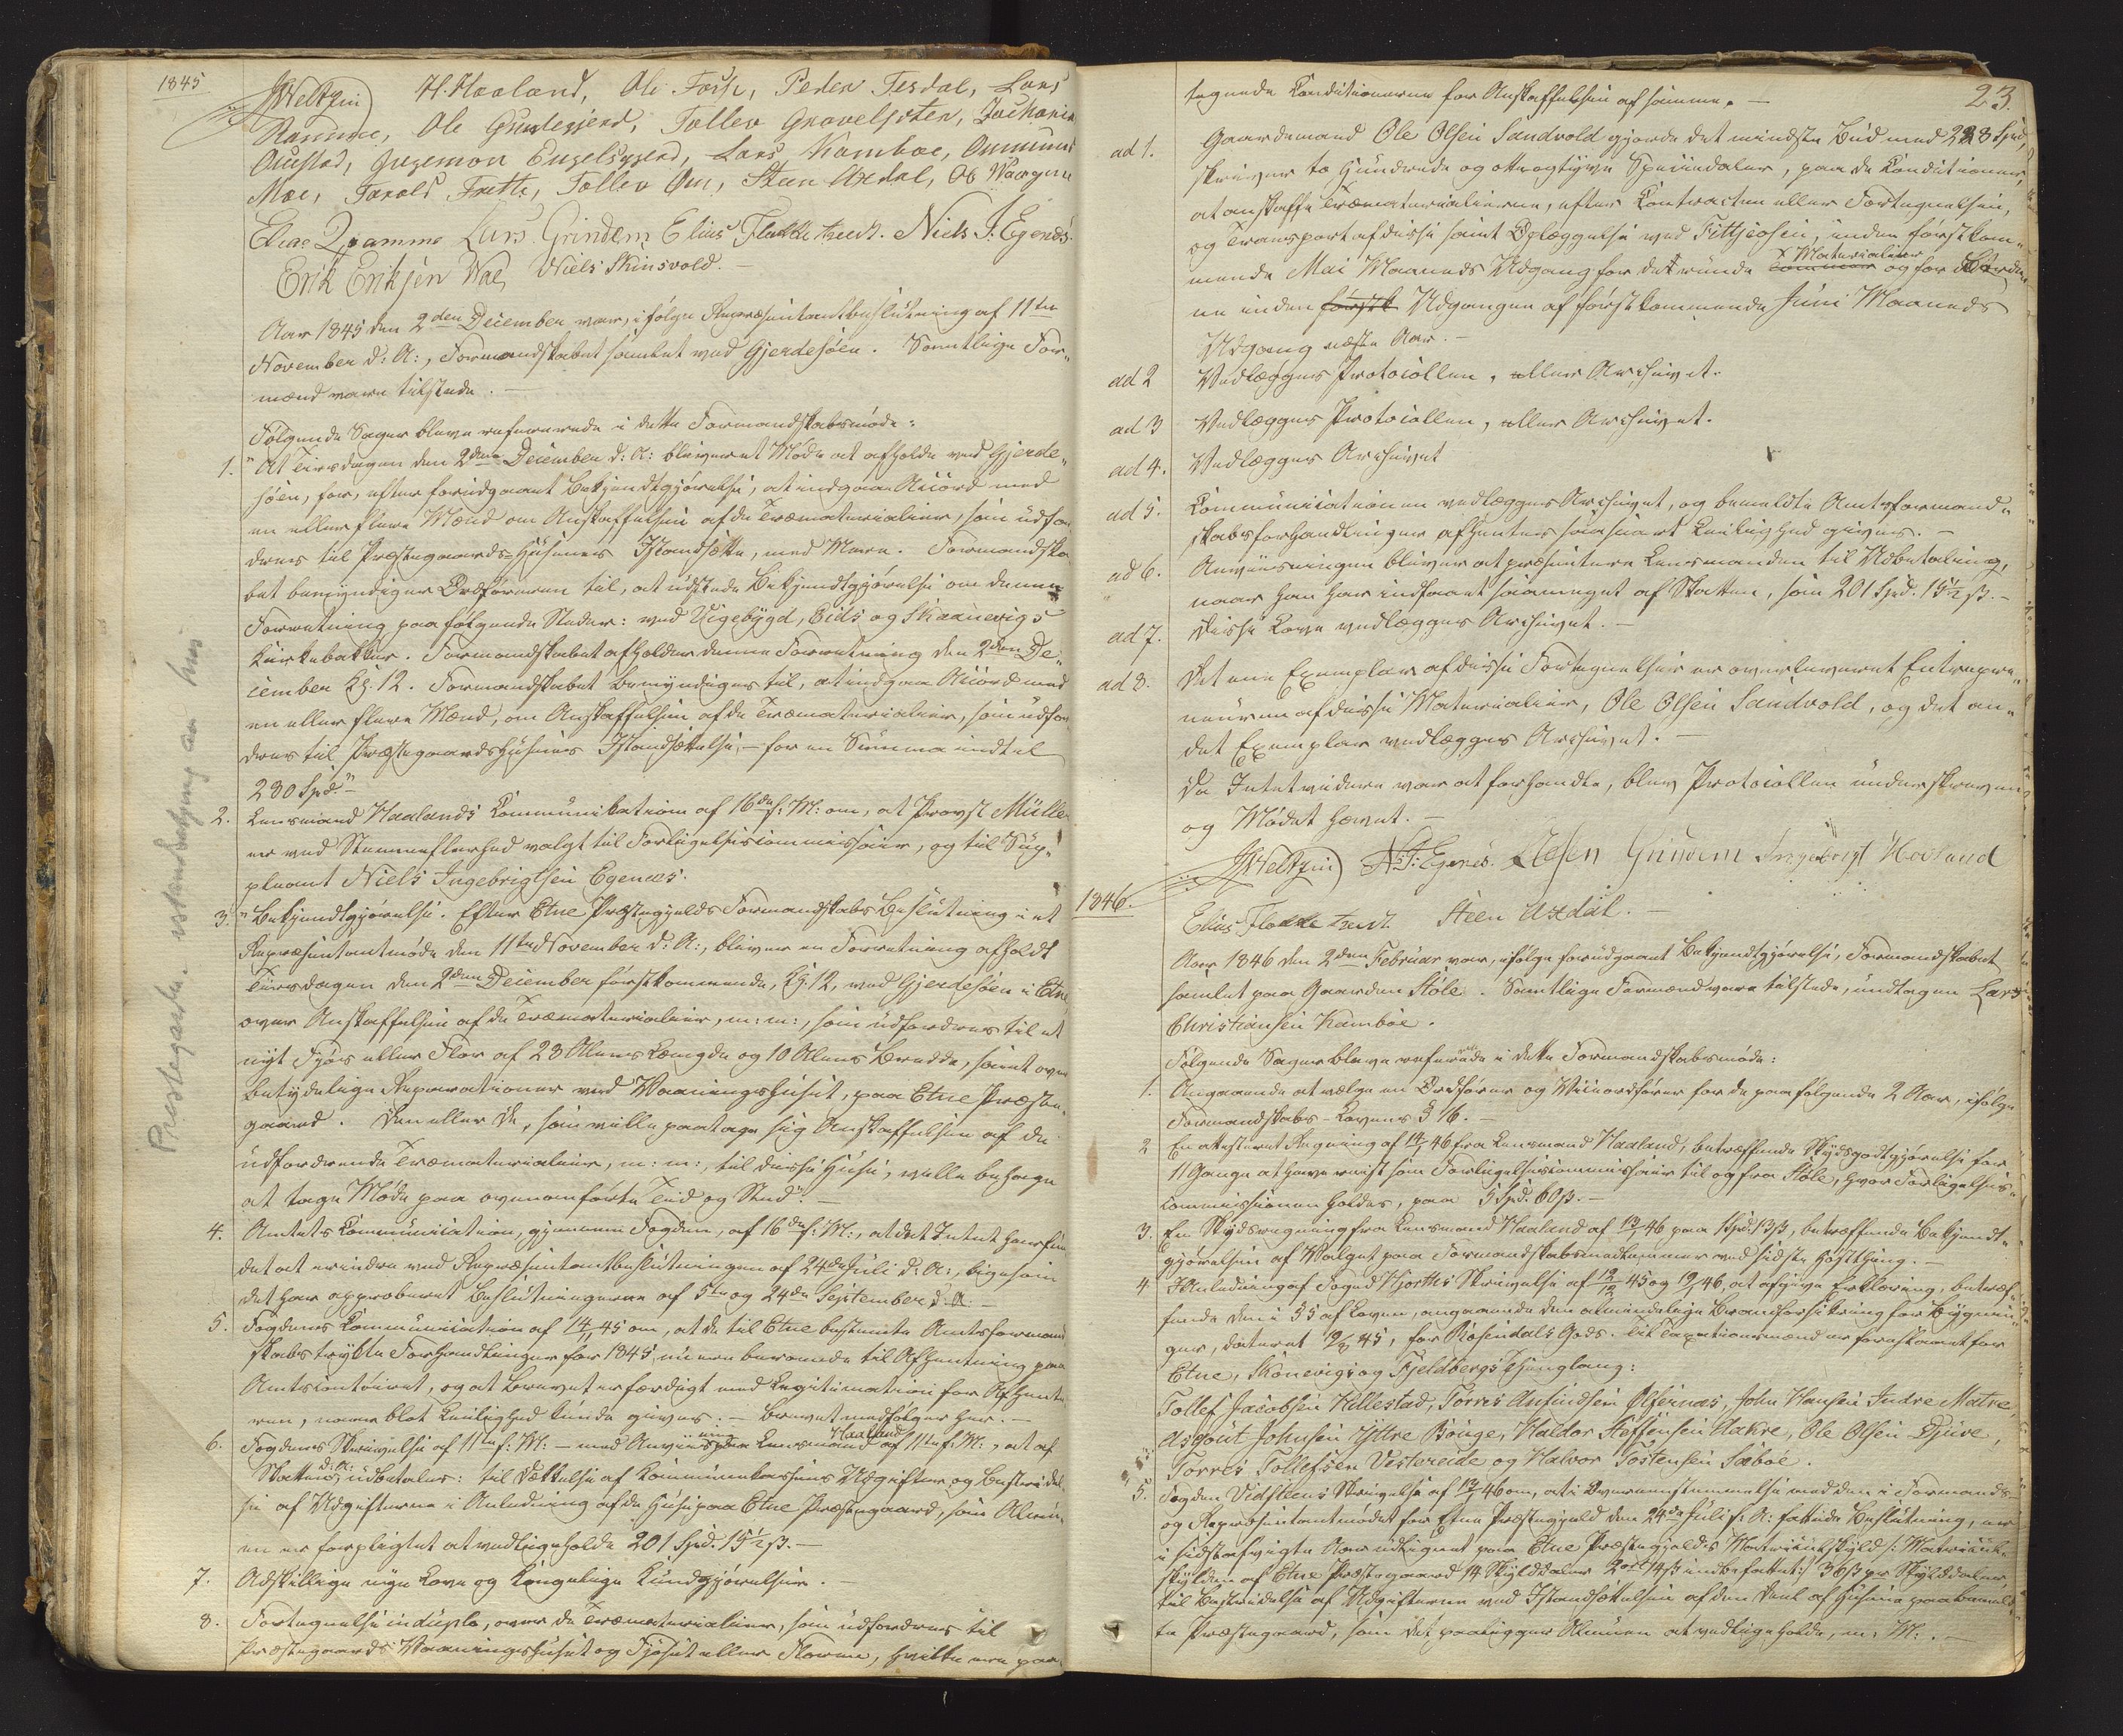 1845
JWeltzin H. Haaland, Ole Fosse, Peder Tesdal, Lars
Ramme, Ole Grindegjerd, Tollev Gravelsæter, Zacharias
Austad, Ingemon Engelsgjerd, Lars Kamboe, Ommund
Moe, Tarald Frette, Tollev Øen, Steen Axdal, Ob Vaagene
Elias Qvamme Lars Grindem Elias Fladketvedt. Niels I. Egenæs.
Erik Eriksen Wae, Niels Skinsvold. –
Aar 1845 den 2den December var, ifølge Repræsentantbeslutning af 11te
November d: A:, Formandskabet samlet ved Gjerdesøen. Samtlige For-
mænd vare tilstede. –
Følgende Sager bleve refererede i dette Formandskabsmøde:
1. "At Tirsdagen den 2den December d: A: bliver et Møde at afholde ved Gjerde-
søen, for, efter forudgaaet Bekjendtgjørelse, at indgaa Accord med
en eller flere Mænd om Anskaffelsen af de Træmaterialier, som udfor
dres til Præstegaards-Husenes Istandsætte, med Mere. Formandska-
bet bemyndiger Ordføreren til, at udstede Bekjendtgjørelse om denne
Forretning paa følgende Steder: ved Vigebygd, Eids og Skaanevigs
Kirkebakker. Formandskabet afholder denne Forretning den 2den De-
cember Kl. 12. Formandskabet bemyndiges til, at indgaa Accord med
en eller flere Mænd, om Anskaffelsen af de Træmaterialier, som udfor
dres til Præstegaardshusenes Istandsættelse, – for en Summa indtil
230 Spd." –
2. Lensmand Haalands Communikation af 16de f: M: om, at Provst Müller
er ved Stemmefleerhed valgt til Forligelsescommissair, og til Sup-
pleant Niels Ingebrigtsen Egenæs.
3. "Bekjendtgjørelse. Efter Etne Præstegjelds Formandskabs Beslutning i et
Repræsentantmøde den 11te November d: A:, bliver en Forretning afholdt
Tirsdagen den 2den December førstkommende, Kl. 12, ved Gjerdesøen i Etne,
over Anskaffelsen af de Træmaterialier, m: m:, som udfordres til et
nyt Fjøs eller Flor af 23 Alens Længde og 10 Alens Bredde, samt over
betydelige Reparationer ved Vaaningshuset, paa Etne Præste-
gaard. Den eller De, som ville paatage sig Anskaffelsen af de
udfordrende Træmaterialier, m: m:, til disse Huse, ville behage
at tage Møde paa ovenanførte Tid og Sted". –
4. Amtets Communication, gjennem Fogden, af 16de f: M:, at det Intet har fun
det at erindre ved Repræsentantbeslutningen af 24de Juli d: A:, ligesom
det har approberet Beslutningerne af 5te og 24de September d: A: –
5. Fogdens Communication af 14/11 45 om, at de til Etne bestemte Amtsformand
skabs trykte Forhandlinger for 1845, nu ere beroende til Afhentning paa
Amtscontoiret, og at Brevet er færdigt med Legitimation for Afhente
ren, naar blot Leilighed kunde gives. – Brevet medfølger her. –
6. Fogdens Skrivelse af 11te f: M: – med Anviisning til Lensmand Haaland af 11te f: M:, at af
Skatten d: A: udbetales: til Dækkelse af Kommunekassens Udgifter og Bestridel-
se af Udgifterne i Anledning af de Huse paa Etne Præstegaard, som Almu-
en er forpligtet at vedligeholde 201 Spd. 15½ ß. –
7. Adskillige nye Love og Kongelige Kundgjørelser. –
8. Fortegnelse in duplo, over de Træmaterialier, som udfordres til
Præstegaards Vaaningshuset og Fjøset eller Floren, hvilke ere paa-
Prestegarden istandsetjing av hus
23.
tegnede Conditionerne for Anskaffelsen af samme. –
ad 1. Gaardmand Ole Olsen Sandvold gjorde det mindste Bud med 228 Spd,
skriver to Hundrede og otteogtyve Speciedaler, paa de Conditioner,
at anskaffe Træmaterialierne, efter Contracten eller Fortegnelsen,
og Transport af disse samt Oplæggelse ved Fitthiosen, inden førstkom-
mende Mai Maaneds Udgang for det runde Materialier og for Bordene
inden Udgangen af førstkommende Juni Maaneds
Udgang næste Aar. –
ad 2 Vedlægges Protocollen, eller Archivet.
ad 3 Vedlægges Protocollen, eller Archivet.
ad 4. Vedlægges Archivet
ad 5. Communicationen vedlægges Archivet, og bemeldte Amtsformand-
skabsforhandlinger afhentes saasnart Leilighed gives. –
ad 6. Anviisningen bliver at præsentere Lensmanden til Udbetaling,
naar han har indfaaet saameget af Skatten, som 201 Spd. 15½ ß. –
ad 7. Disse Love vedlægges Archivet. –
ad 8. Det ene Exemplar af disse Fortegnelser er overleveret Entrepre-
neuren af disse Materialier, Ole Olsen Sandvold, og det an-
det Exemplar vedlægges Archivet. –
Da Intet videre var at forhandle, blev Protocollen underskreven
og Mødet hævet. –
JWeltzin N. I: Egenæs. LOlsen Grindem Ingebrigt Hovland
1846.
Elias Fladketvedt Steen Axdal. –
Aar 1846 den 2den Februar var, ifølge forudgaaet Bekjendtgjørelse, Formandskabet
samlet paa Gaarden Støle. Samtlige Formænd vare tilstede, undtagen Lars
Christiansen Kamboe.
Følgende Sager bleve refererede i dette Formandskabsmøde:
1. Angaaende at vælge en Ordfører og Viceordfører for de paafølgende 2 Aar, ifølge
Formandskabs-Lovens § 16. –
2 En attesteret Regning af 14/1 46 fra Lensmand Haaland, betræffende Skydsgodtgjørelse for
11 Gange at have reist som Forligelsescommissair til og fra Støle, hvor Forligelses-
commissionen holdes, paa 5 Spd. 60 ß. –
3. En Skydsregning fra Lensmand Haaland af 13/1 46 paa 1 Spd. 13 ß, betræffende Bekjendt-
gjørelsen af Valget paa Formandskabsmedlemmer ved sidste Høstthing. –
4 I Anledning af Foged Hjorths Skrivelse af 12/12 45 og 12/1 46, at afgive Erklæring, betræf-
fende den i § 5 af Loven, angaaende den almindelige Brandforsikring for Bygnin-
ger, dateret 19/8 45, for Rosendals Gods. Til Taxationsmænd er foreslaaet for
Etne, Skonevigs og Fjeldbergs Thinglaug:
Tollef Jacobsen Hillestad, Torres Anfindsen Ølfernæs, John Hansen Indre Matre,
Asgout Johnsen Yttre Bouge, Haldor Steffensen Aakre, Ole Olsen Djuve,
Torres Tollefsen Vestvreide og Halvor Tostensen Sæbøe.
5. Fogden Vidsteens Skrivelse af 12/1 46 om, at i Overeensstemmelse med den i Formands-
og Repræsentantmødet for Etne Præstegjeld den 24de Juli f: A: fattede Beslutning, er
i sidstafvigte Aar udlignet paa Etne Præstegjelds Matriculskyld /: Matricul-
skylden af Etne Præstegaard 14 Skylddaler 2 ort 14 ß indbefattet :/ 36 ß pr Skylddaler
til Bestridelse af Udgifterne ved Istandsættelsen af den Deel af Husene paa bemeld-
te Præstegaard, som det paaligger Almuen at vedligeholde, m. M:. –